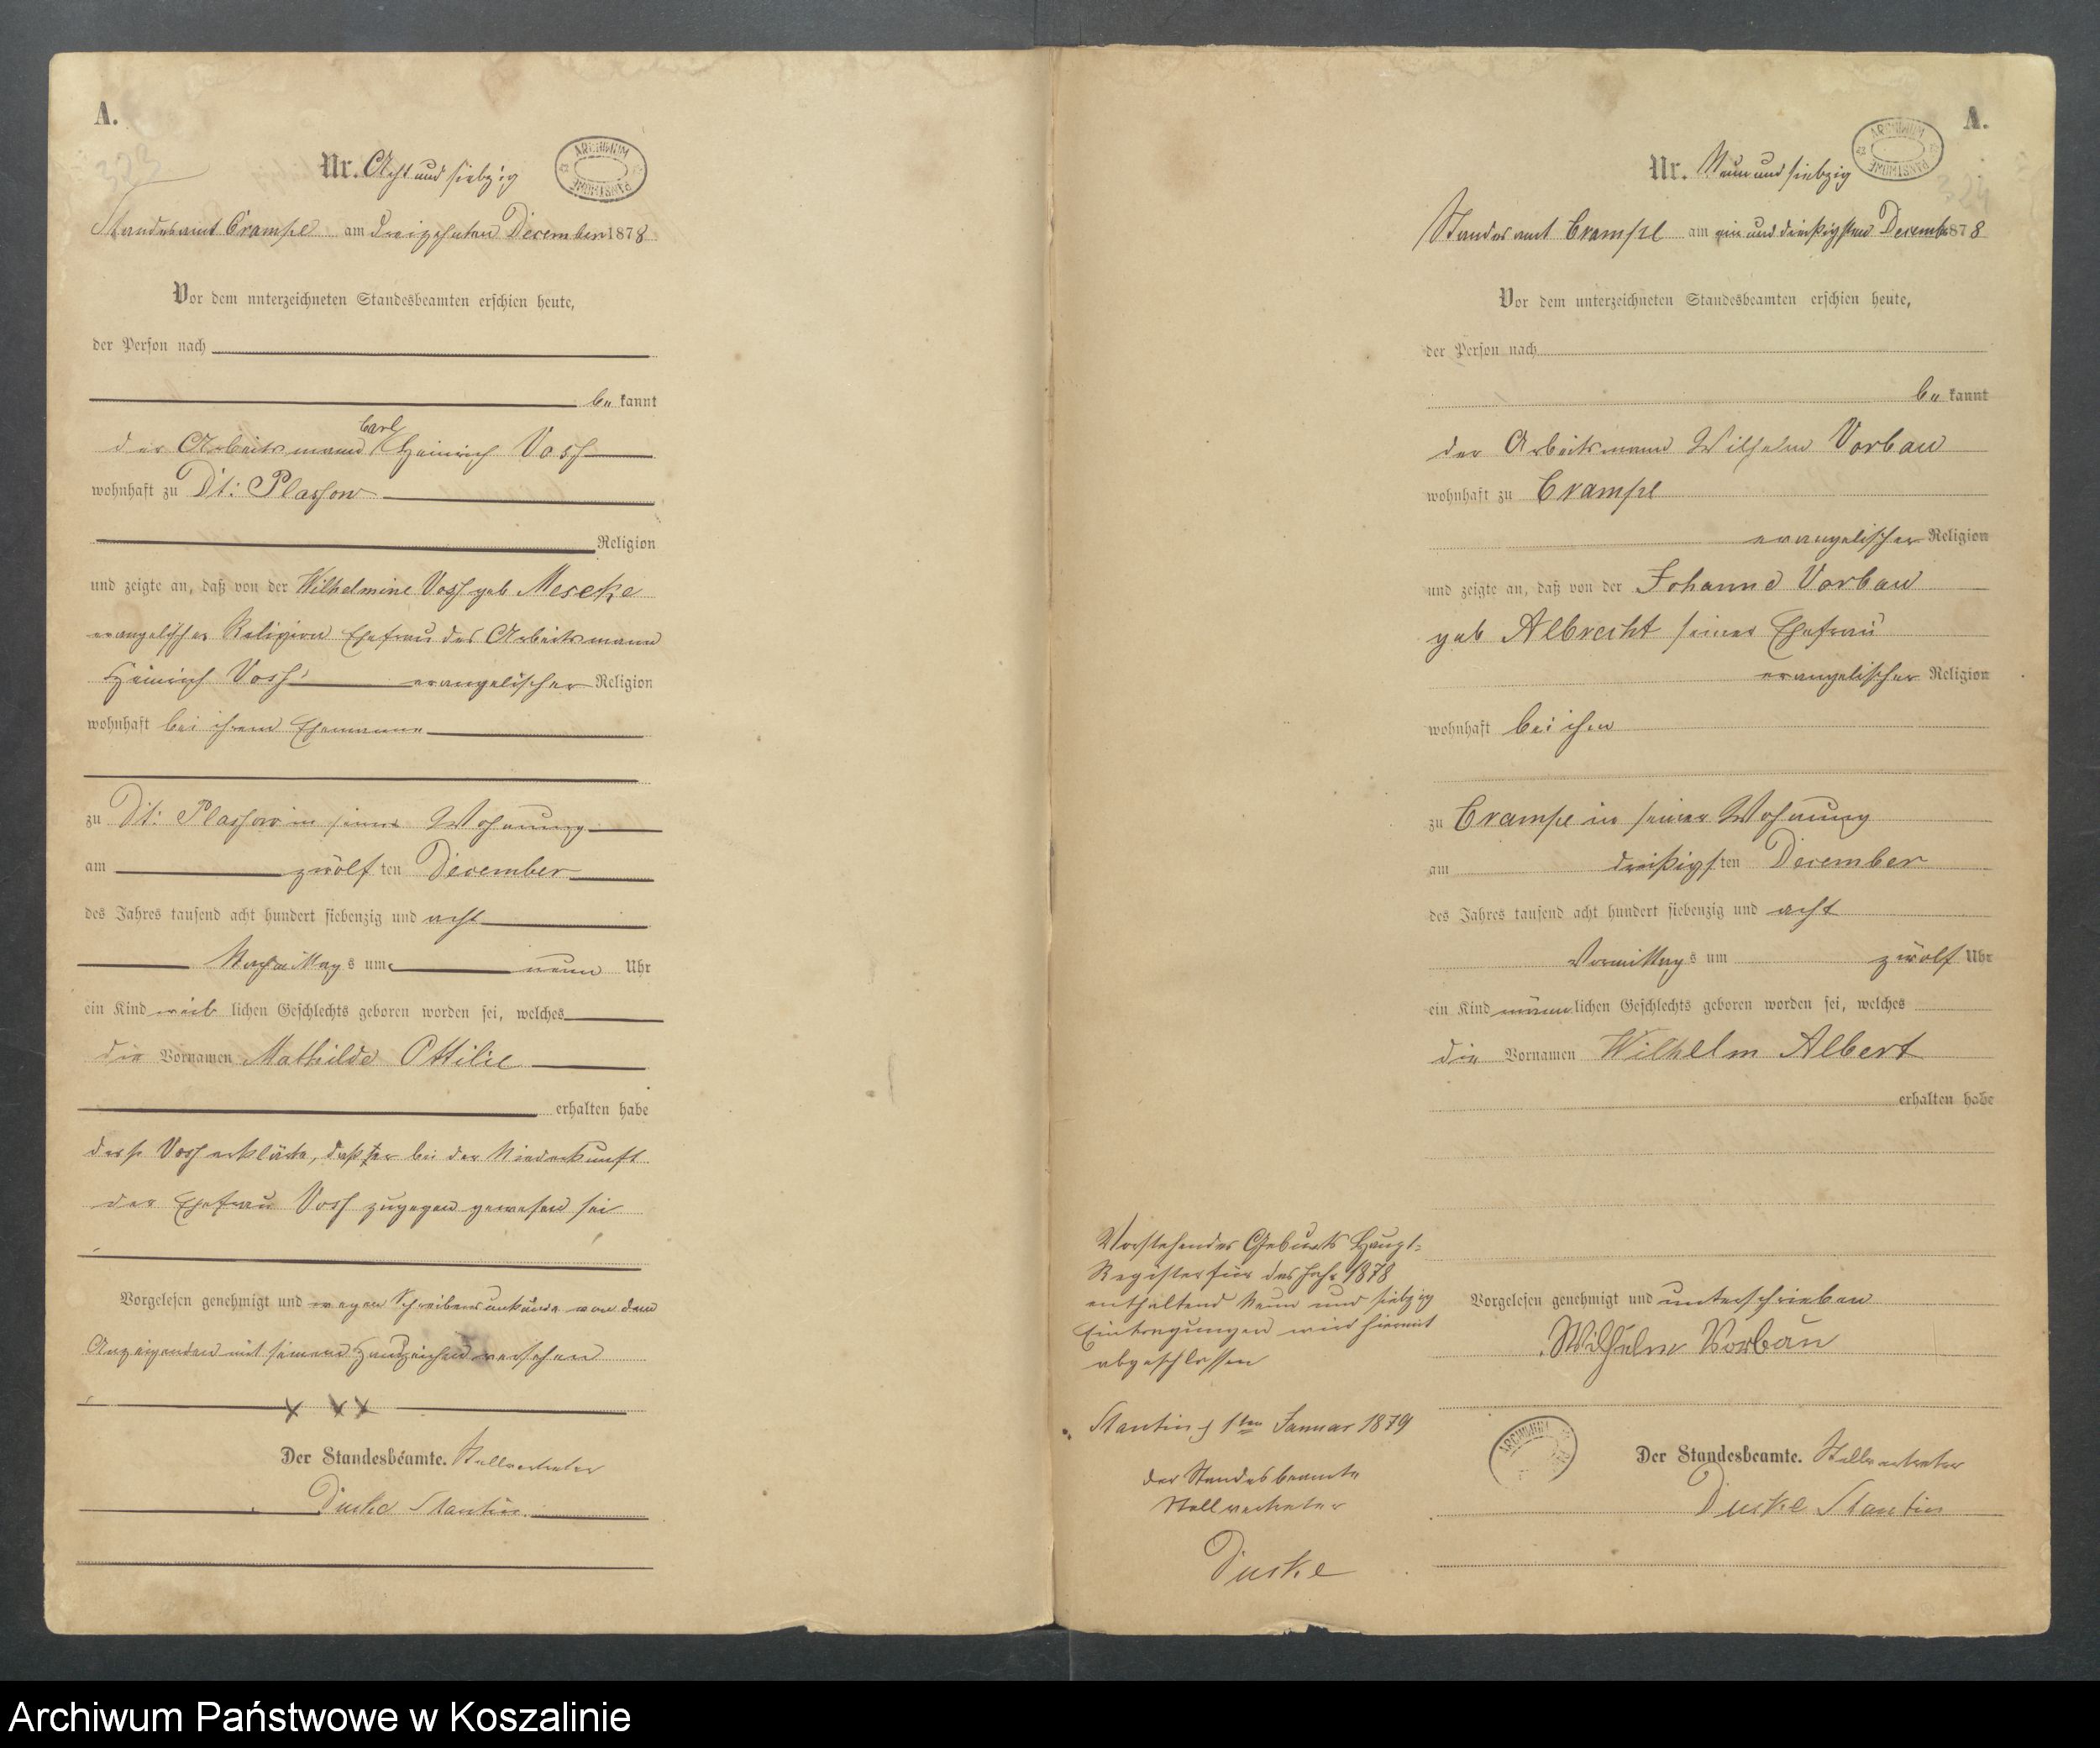 A.
323
Nr. Acht und siebzig
ARCHIWUM PAŃSTWOWE
Standesamt Crampe am dreizehnten December 1878
Vor dem unterzeichneten Standesbeamten erschien heute,
der Person nach
be kannt
Carl
der Arbeitsmann Heinrich Voss
wohnhaft zu Dt: Plassow
Religion
und zeigte an, daß von der Wilhelmine Voss geb Meseke
evangelischer Religion Ehefrau des Arbeitsmann
Heinrich Voss evangelischer Religion
wohnhaft bei ihrem Ehemanne
zu Dt: Plassow in seiner Wohnung
am zwölf ten December
des Jahres tausend acht hundert siebenzig und acht
Nachmittags um neun Uhr
ein Kind weib lichen Geschlechts geboren worden sei, welches
die Vornamen Mathilde Ottilie
erhalten habe
der Voss erklärte, daß er bei der Niederkunft
der Ehefrau Voss zugegen gewesen sei
Vorgelesen genehmigt und wegen Schreibensunkunde von dem
Anzeigenden mit seinem Handzeichen versehen
x x x
Der Standesbeamte. Stellvertreter
Duske Stantin
A.
324
Nr. Neun und siebzig
ARCHIWUM PAŃSTWOWE
Standesamt Crampe am ein und dreißigsten December 1878
Vor dem unterzeichneten Standesbeamten erschien heute,
der Person nach
be kannt
der Arbeitsmann Wilhelm Vorbau
wohnhaft zu Crampe
evangelischer Religion
und zeigte an, daß von der Johanne Vorbau
geb Albrecht seiner Ehefrau
evangelischer Religion
wohnhaft bei ihm
zu Crampe in seiner Wohnung
am dreißigsten December
des Jahres tausend acht hundert siebenzig und acht
Vormittags um zwölf Uhr
ein Kind männlichen Geschlechts geboren worden sei, welches
die Vornamen Wilhelm Albert
erhalten habe
Vorgelesen genehmigt und unterschrieben
Wilhelm Vorbau
ARCHIWUM
Der Standesbeamte. Stellvertreter
Duske Stantin
Vorstehendes Geburts Haupt-
Register für das Jahr 1878
enthaltend Neun und siebzig
Eintragungen wird hiermit
abgeschlossen
Stantin, 1ten Januar 1879
der Standesbeamte
Stellvertreter
Duske
Archiwum Państwowe w Koszalinie